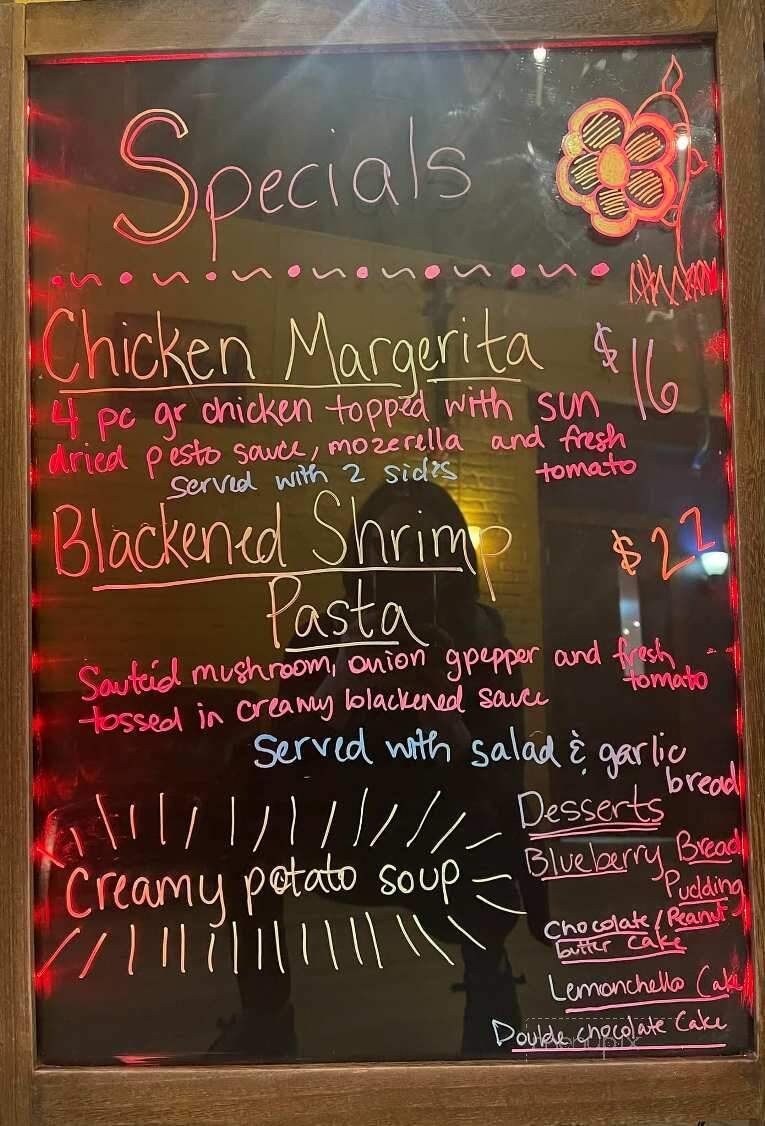 Specials
Chicken Margerita $16
4 pc gr chicken topped with sun
dried pesto sauce, mozerella and fresh
tomato
served with 2 sides
Blackened Shrimp $22
Pasta
Sauteid mushroom, onion gpepper and fresh
tomato
tossed in creamy blackened sauce
Served with salad & garlic
bread
Desserts
Blueberry Bread
Pudding
creamy potato soup
Chocolate/Peanut
butter cake
Lemonchello Cake
Double chocolate Cake